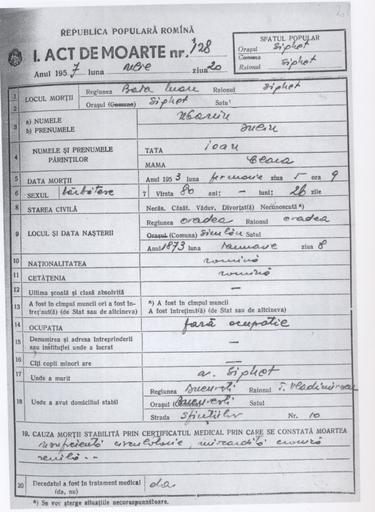 REPUBLICA POPULARĂ ROMÎNĂ
SFATUL POPULAR
I. ACT DE MOARTE nr. 128
Orașul Siphet
Comuna
Raionul Siphet
Anul 1957 luna ziua 20
1 LOCUL MORȚII Regiunea Baia Mare Raionul Siphet
2 Orașul (Comuna) Siphet Satul
3 a) NUMELE Maniu
b) PRENUMELE Iuliu
4 NUMELE ȘI PRENUMELE PĂRINȚILOR TATA Ioan
MAMA Clara
5 DATA MORȚII Anul 1953 luna februarie ziua 5 ora 9
6 SEXUL bărbătesc 7 Vîrsta 80 ani; — luni; 26 zile
8 STAREA CIVILĂ Necăs. Căsăt. Văduv, Divorțat(ă) Necunoscută *)
9 LOCUL ȘI DATA NAȘTERII Regiunea oradea Raionul oradea
Orașul (Comuna) Satul
Anul 1873 luna Ianuarie ziua 8
10 NAȚIONALITATEA romînă
11 CETĂȚENIA romînă
12 Ultima școală și clasă absolvită —
13 A fost în cîmpul muncii ori a fost întreținut(ă) (de Stat sau de altcineva) *) A fost în cîmpul muncii
A fost întreținut(ă) (de Stat sau de altcineva)
14 OCUPAȚIA fără ocupație
15 Denumirea și adresa întreprinderii sau instituției unde a lucrat —
16 Cîți copii minori are —
17 Unde a murit Siphet
18 Unde a avut domiciliul stabil Regiunea București Raionul T. Vladimirescu
Orașul București Satul
Strada Sfinților Nr. 10
19. CAUZA MORȚII STABILITĂ PRIN CERTIFICATUL MEDICAL PRIN CARE SE CONSTATĂ MOARTEA
insuficiență circulatorie, miocardită cronică
senilă
20 Decedatul a fost în tratament medical (da, nu) da
*) Se vor șterge situațiile necorespunzătoare.